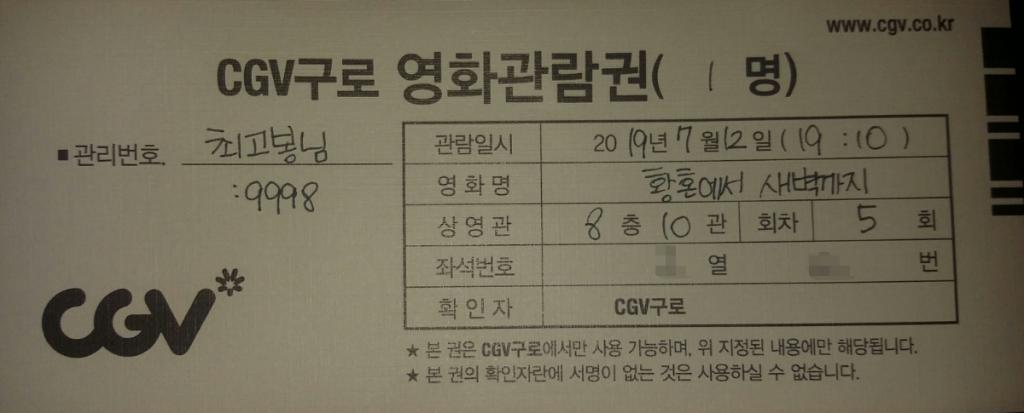 www.cgv.co.kr
CGV구로 영화관람권( 1 명)
■ 관리번호. 최고봉님
:9998
관람일시 2019년 7월12일(19:10)
영화명 황혼에서 새벽까지
상영관 8층 10관 회차 5회
좌석번호 열 번
확인자 CGV구로
CGV*
★ 본 권은 CGV구로에서만 사용 가능하며, 위 지정된 내용에만 해당됩니다.
★ 본 권의 확인자란에 서명이 없는 것은 사용하실 수 없습니다.